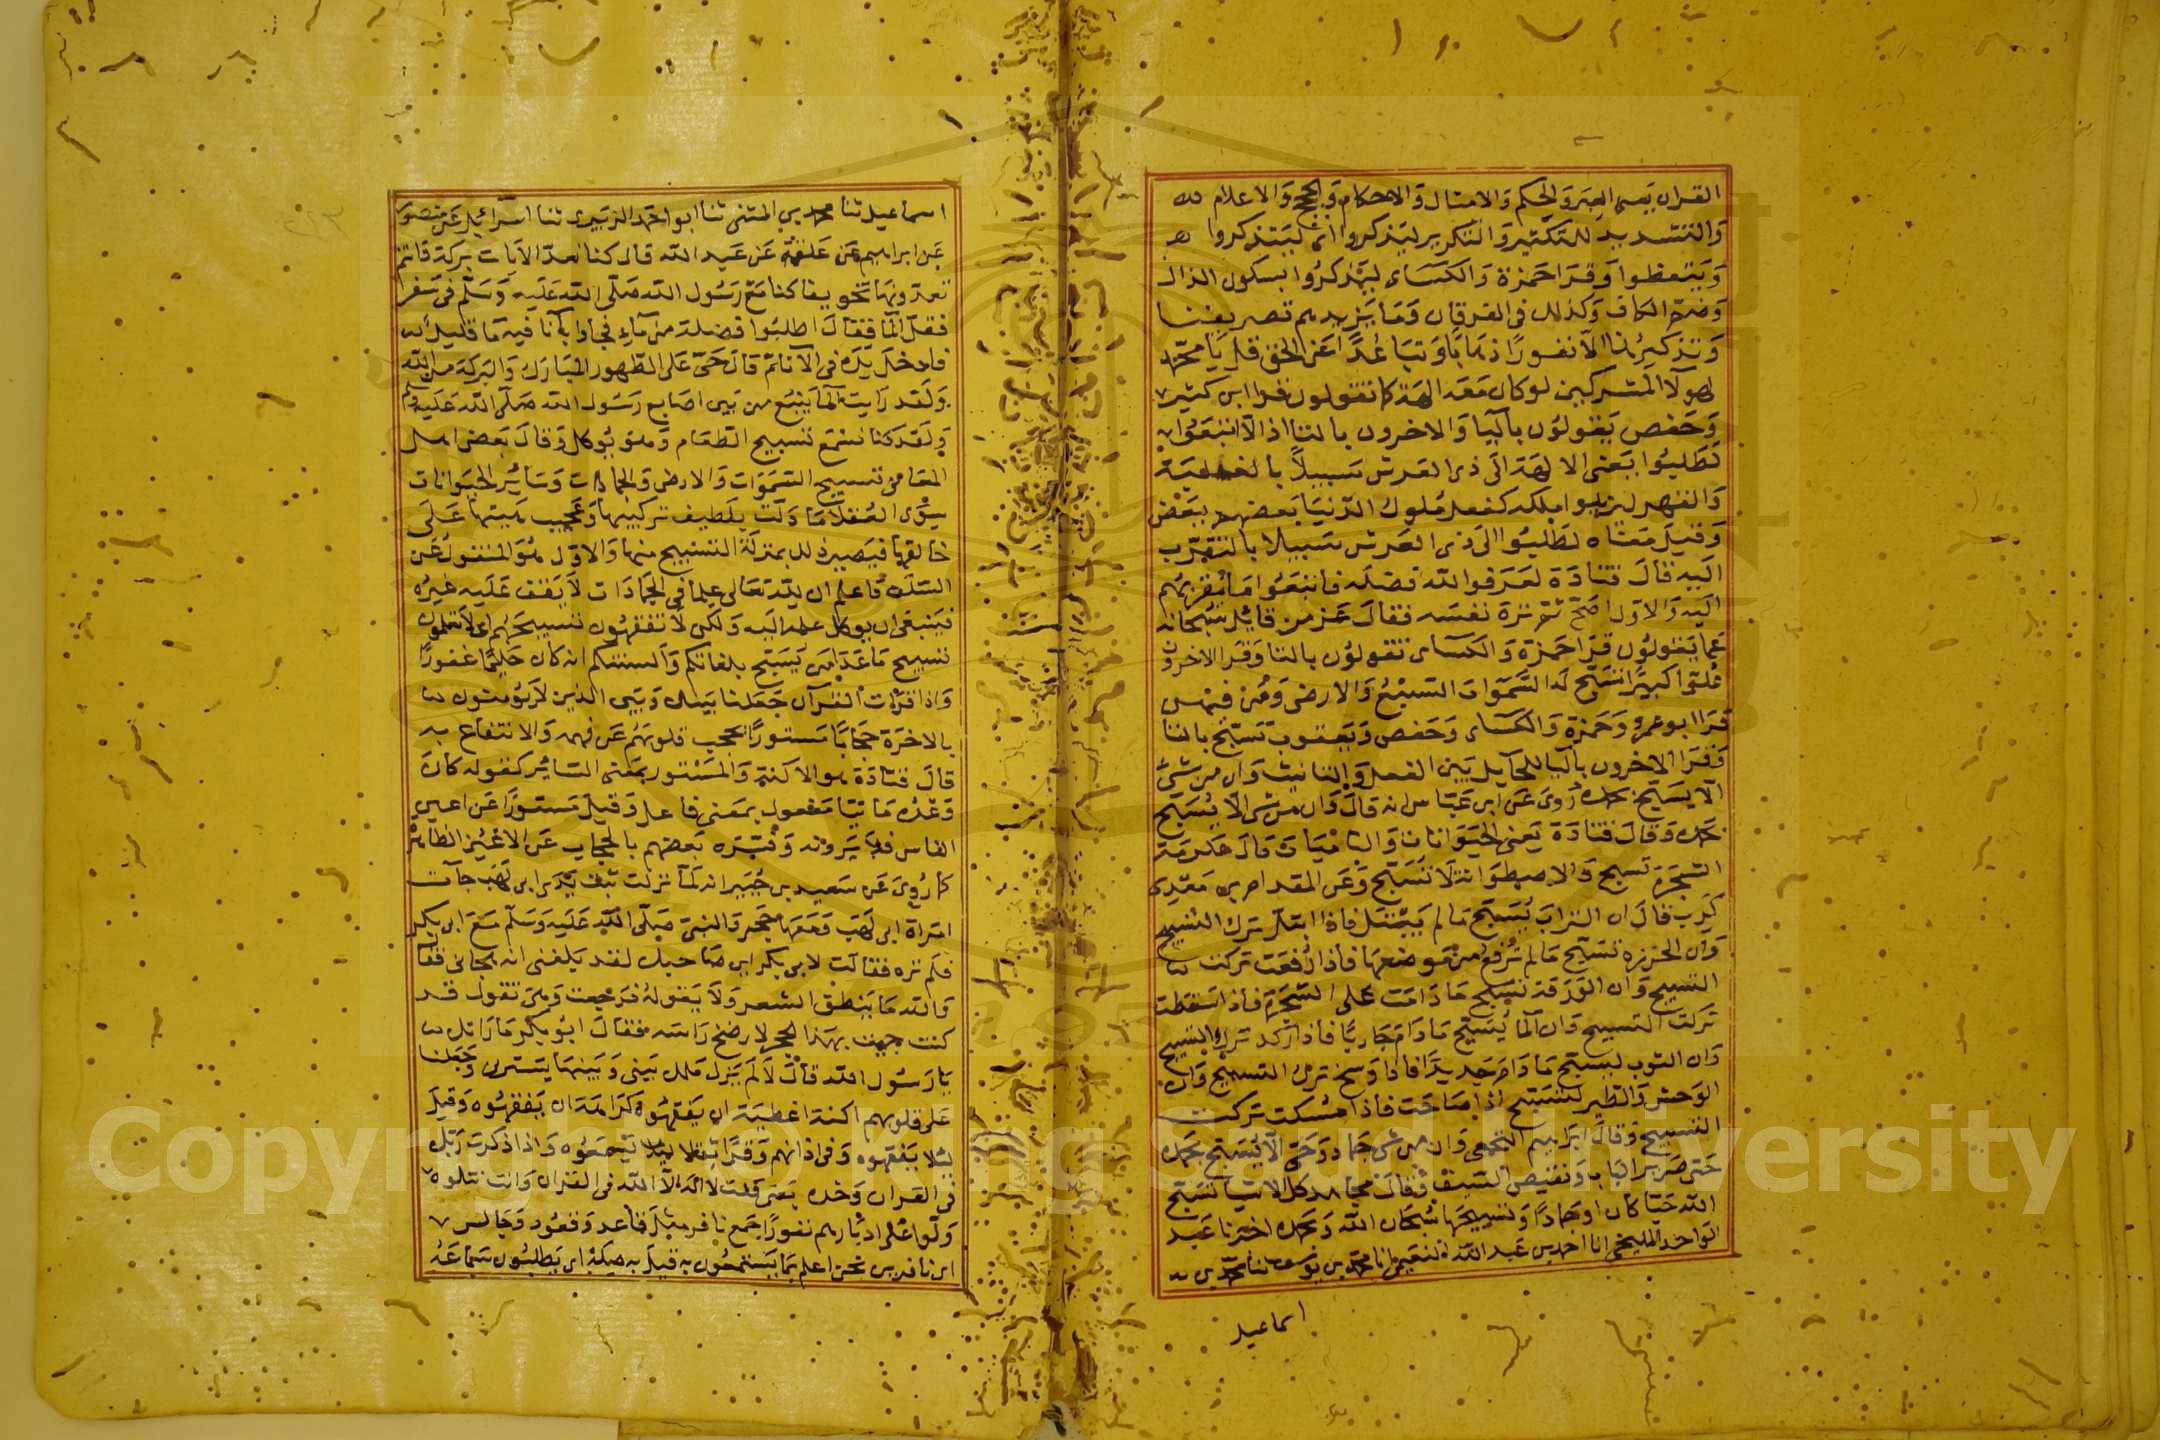 القران يعنى العبر والحكم والامثال والاحكام والحجج والاعلام
والتشديد للتكثير والتكرير ليذكروا اى ليتذكروا
ويتعظوا وقرا حمزة والكساى ليذكروا بسكون الذال
وضم الكاف وكذلك فى الفرقان وما يزيدهم تصريفنا
وتذكيرنا الا نفورا ذهابا وتباعدا عن الحق قل يا محمد
لهولا المشركين لو كان معه الهة كما تقولون قرا ابن كثير
وحفص يقولون باليا والاخرون بالتا اذا لابتغوا
لطلبوا يعنى الالهة الى ذى العرش سبيلا بالغلبة
والقهر ليزيلوا ملكه كفعل ملوك الدنيا بعضهم ببعض
وقيل معناه لطلبوا الى ذى العرش سبيلا بالتقرب
اليه قال قتادة لعرفوا الله فضله فابتغوا ما يقربهم
اليه والاول اصح ثم نزه نفسه فقال عز من قائل سبحانه
عما يقولون قرا حمزة والكساى تقولون بالتا وقرا الاخرون
علوا كبيرا تسبح له السموات السبع والارض ومن فيهن
قرا ابو عمرو وحمزة والكساى وحفص ويعقوب تسبح بالتا
وقرا الاخرون باليا للحايل بين الفعل والتانيث وان من شى
الا يسبح بحمده روى عن ابن عباس انه قال وان من شى الا يسبح
بحمده وقال قتادة يعنى الحيوانات والناميات قال عكرمة
الشجرة تسبح والاصطوانة لا تسبح وعن المقدام بن معدى
كرب قال ان التراب يسبح ما لم يبتل فاذا ابتل ترك التسبيح
وان الخرزة تسبح ما لم ترفع من موضعها فاذا رفعت تركت
التسبيح وان الورقة تسبح ما دامت على الشجرة فاذا سقطت
تركت التسبيح وان الما يسبح ما دام جاريا فاذا ركد ترك التسبيح
وان الثوب ليسبح ما دام جديدا فاذا وسخ ترك التسبيح وان
الوحش والطير لتسبح اذا صاحت فاذا سكت تركت
التسبيح وقال ابراهيم النخعى وان من شى جماد وحى الا يسبح بحمده
حتى صرير الباب ونقيض السقف وقال مجاهد كل الاشيا تسبح
الله حيا كان او جمادا وتسبيحها سبحان الله وبحمده اخبرنا عبد
الواحد المليحى انا احمد بن عبد الله النعيمى انا محمد بن يوسف ثنا محمد بن
اسماعيل
اسماعيل ثنا محمد بن المثنى ثنا ابو احمد الزبيرى ثنا اسرائيل عن منصور
عن ابراهيم عن علقمة عن عبد الله قال كنا نعد الايات بركة فانتم
تعدونها تخويفا كنا مع رسول الله صلى الله عليه وسلم فى سفر
فقل الما فقال اطلبوا فضلة من ماء فجاوا بانا فيه ما قليل
فادخل يده فى الانا ثم قال حى على الطهور المبارك والبركة من الله
ولقد رايت الما ينبع من بين اصابع رسول الله صلى الله عليه وسلم
ولقد كنا نسمع تسبيح الطعام وهو يوكل وقال بعض اهل
المعانى تسبيح السموات والارض والجمادات وساير الحيوانات
سوى العقلا ما دلت بلطيف تركيبها وعجيب هيئتها على
خالقها فيصير ذلك بمنزلة التسبيح منها والاول هو المنقول عن
السلف واعلم ان لله تعالى علما فى الجمادات لا يقف عليه غيره
فينبغى ان يوكل علمه اليه ولكن لا تفقهون تسبيحهم اى لا تعلمون
تسبيح ما عدا من يسبح بلغاتكم والسنتكم انه كان حليما غفورا
واذا قرات القرآن جعلنا بينك وبين الذين لا يومنون
بالاخرة حجابا مستورا يحجب قلوبهم عن فهمه والانتفاع به
قال قتادة هو الاكنة والمستور بمعنى الساتر كقوله كان
وعده ماتيا مفعول بمعنى فاعل وقيل مستورا عن اعين
الناس فلا يرونه وفسره بعضهم بالحجاب عن الاعين الظاهرة
كما روى عن سعيد بن جبير انه لما نزلت تبت يدا ابى لهب جات
امراة ابى لهب ومعها حجر والنبى صلى الله عليه وسلم مع ابى بكر
فلم تره فقالت لابى بكر اين صاحبك لقد بلغنى انه هجانى فقال
والله ما ينطق الشعر ولا يقوله فرجعت وهى تقول قد
كنت جيت بهذا الحجر لارضخ راسه فقال ابو بكر ما راتك
يا رسول الله قال لا لم يزل ملك بينى وبينها يسترنى وجعلنا
على قلوبهم اكنة اغطية ان يفقهوه كراهة ان يفقهوه وقيل
ليلا يفقهوه وفى اذانهم وقرا ثقلا ليلا يسمعوه واذا ذكرت ربك
فى القران وحده يعنى قلت لا اله الا الله فى القران وانت تتلوه
ولوا على ادبارهم نفورا جمع نافر مثل قاعد وقعود وجالس
اى نافرين نحن اعلم بما يستمعون به قيل به صلة اى يطلبون سماعه
Copyright © King Saud University